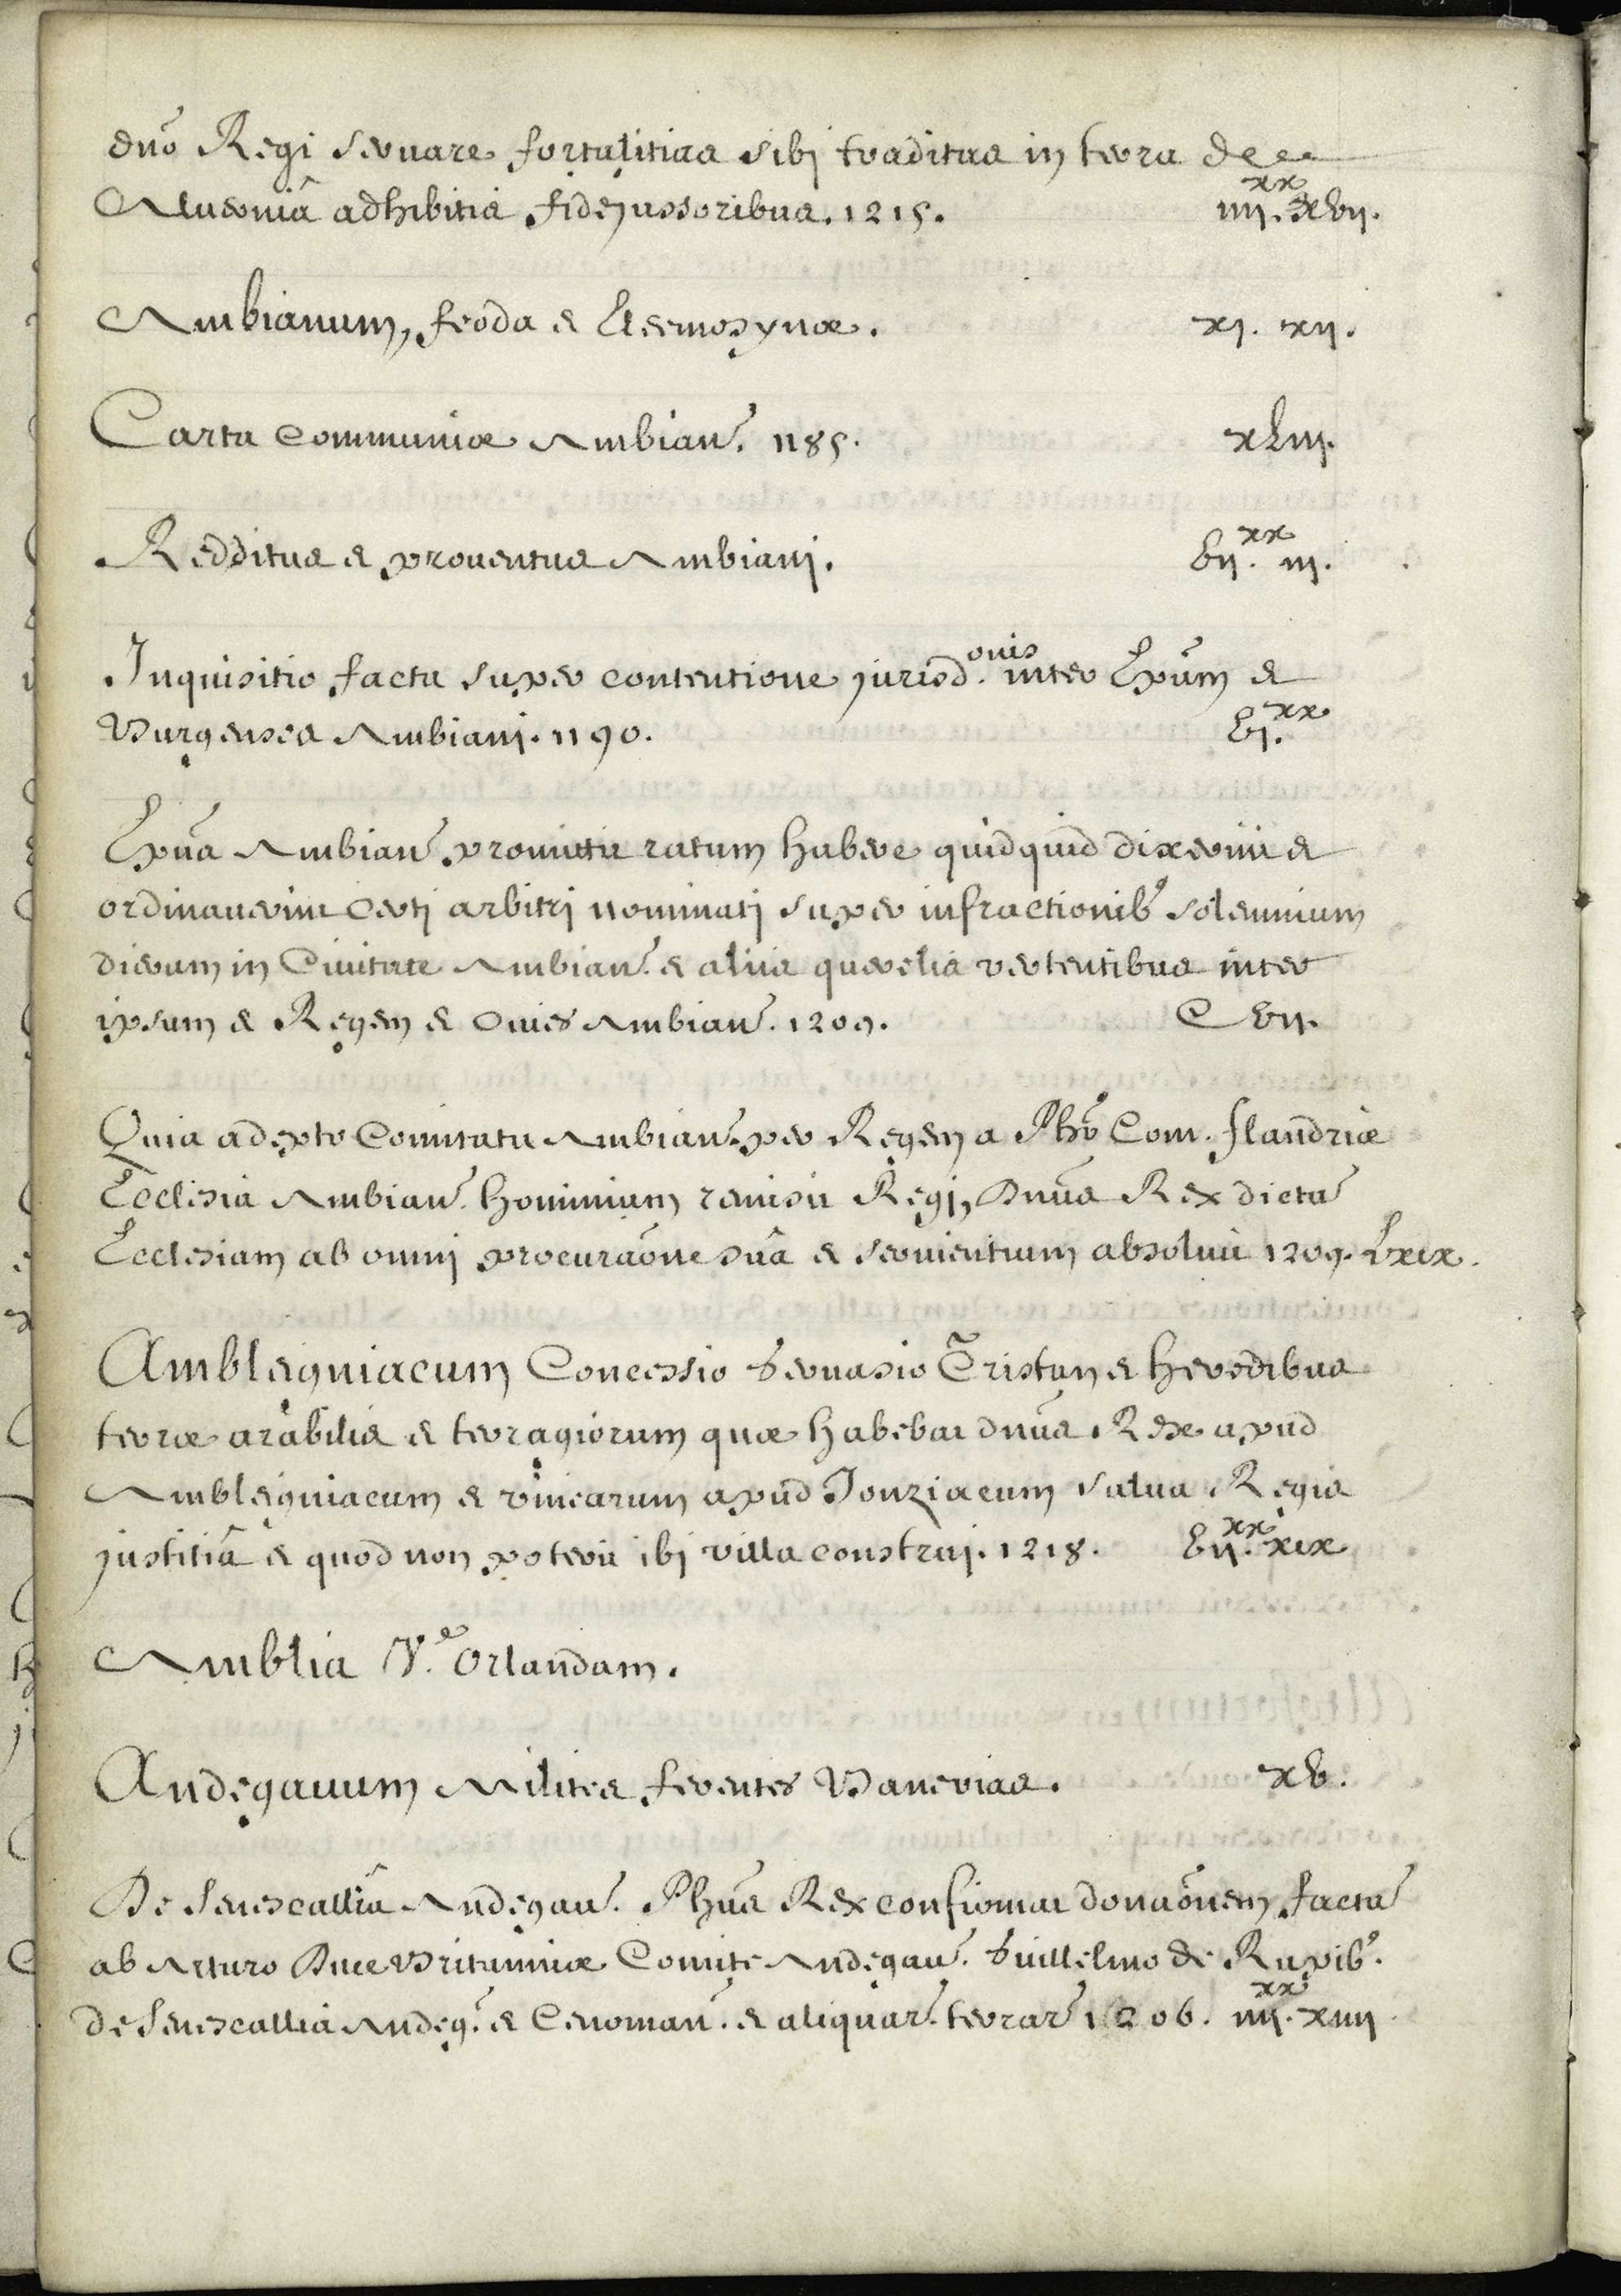 dño Regi servare fortalitias sibi traditas in terra de
Aluerniâ adhibitis fidejussoribus. 1215. iiij.xx xvij.
Ambianum, feoda & Eleemosynæ. xj. xij.
Carta Communiæ Ambian̄. 1185. xLiij.
Redditus & proventus Ambiani. vij.xx iij.
Inquisitio facta super contentione jurisd.onis inter Ep̄um &
Burgenses Ambiani. 1190. vj.xx
Ep̄us Ambian̄. promittit ratum habere quidquid dixerint &
ordinauerint Certi arbitri nominati super infractionib9 solemnium
dierum in Ciuitate Ambian̄. & aliis querelis vertentibus inter
ipsum & Regem & Ciues Ambian̄. 1209. C vij.
Quia adepto Comitatu Ambian̄. per Regem a Ph̄o Com. flandriæ
Ecclesia Ambian̄. hominium remisit Regi, Dn̄us Rex dictā
Ecclesiam ab omni procurãone suâ & servientium absoluit 1209. Lxix.
Amblegniacum Concessio Geruasio Tristan & heredibus
terræ arabilis & terragiorum quæ habebat dn̄us Rex apud
Amblegniacum & vinearum apud Jonziacum salua Regis
justitiâ & quod non poterit ibi villa construi. 1218. vij.xx xix
Amblia V.e Orlandam.
Andegauum Milites ferentes Banerias. xv.
De Senescalliâ Andegau̅. Ph̄us Rex confirmat donãonem factā
ab Arturo Duce Britanniæ Comite Andegau̅. Guillelmo de Rupib9.
de Senescallia Andeg̅. & Cenoman̄. & aliquar̄. terrar̄ 1206. iiij.xx xiiij